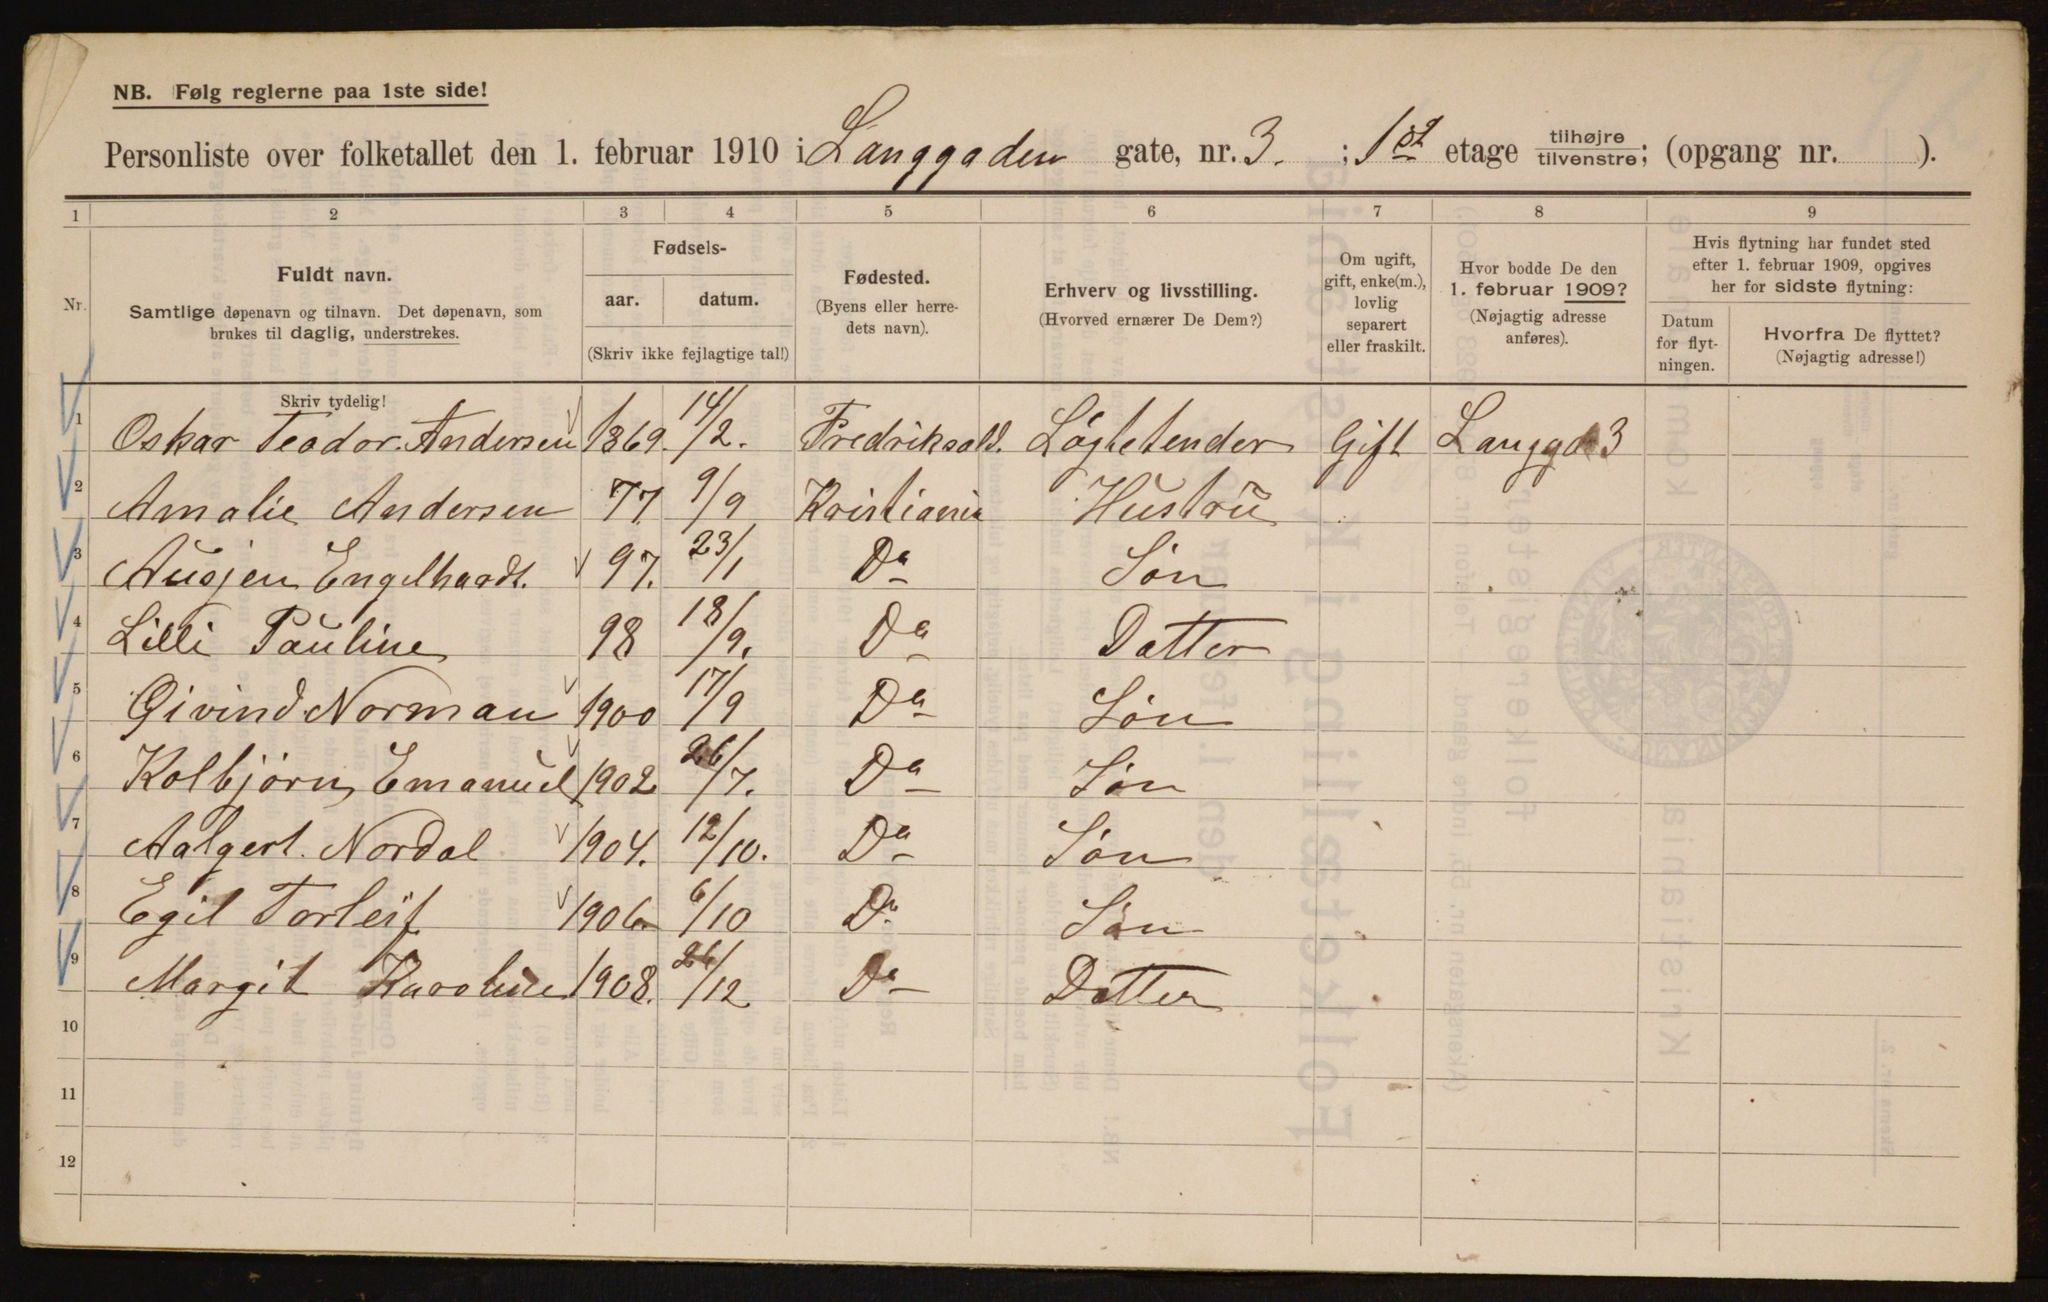 NB. Følg reglerne paa 1ste side!
Personliste over folketallet den 1. februar 1910 i Langgaden gate, nr. 3. ; 1st etage tilhøjre/tilvenstre; (opgang nr. ).
1 2 3 4 5 6 7 8 9
Nr.
Fuldt navn.
Samtlige døpenavn og tilnavn. Det døpenavn, som
brukes til daglig, understrekes.
Fødsels-
aar. datum.
(Skriv ikke fejlagtige tal!)
Fødested.
(Byens eller herre-
dets navn).
Erhverv og livsstilling.
(Hvorved ernærer De Dem?)
Om ugift,
gift, enke(m.),
lovlig
separert
eller fraskilt.
Hvor bodde De den
1. februar 1909?
(Nøjagtig adresse
anføres).
Hvis flytning har fundet sted
efter 1. februar 1909, opgives
her for sidste flytning:
Datum
for flyt-
ningen.
Hvorfra De flyttet?
(Nøjagtig adresse!)
Skriv tydelig!
1 Oskar Teodor Andersen 1869. 14/2. Fredriksald. Løgtetender Gift Langgd 3
2 Amalie Andersen 77 9/9 Kristiania Hustru
3 Engelhardt. 97. 23/1 Do Søn
4 Lilli Pauline 98 18/9. Do Datter
5 Øivind Norman 1900 17/9 Do Søn
6 Kolbjørn Emanuel 1902 26/7. Do Søn
7 Nordal 1904. 12/10. Do Søn
8 Egil Torleif 1906 6/10 Do Søn
9 Margit Karoline 1908. 26/12 Do Datter
10
11
12